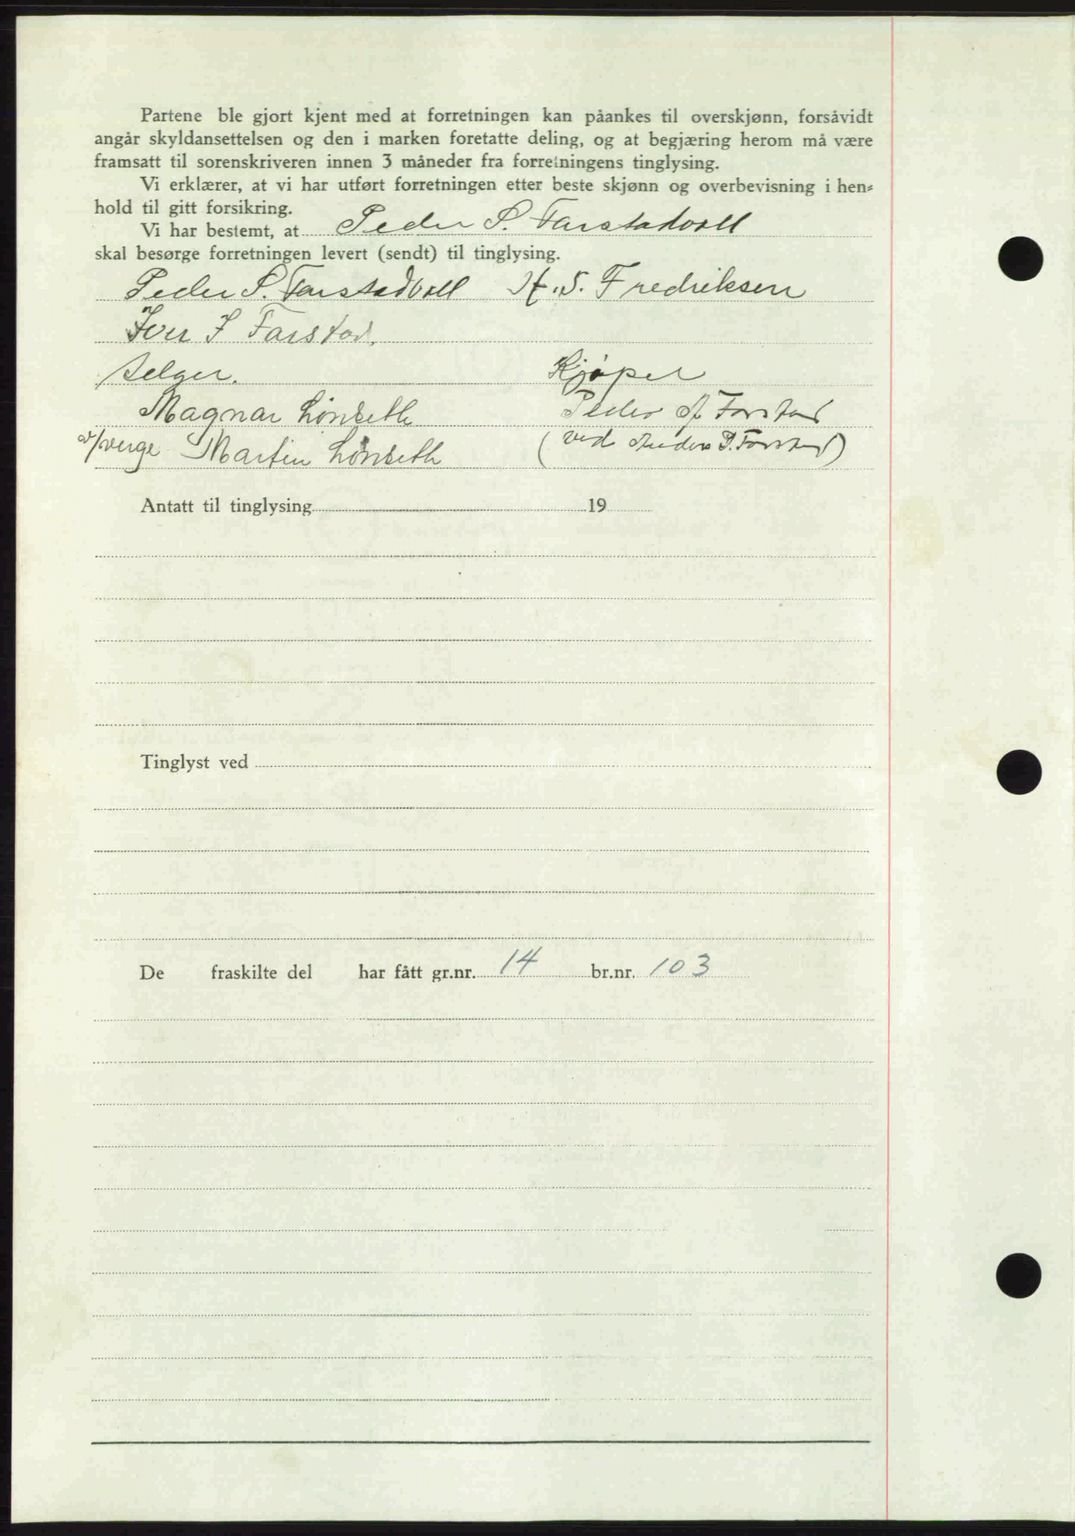 Partene ble gjort kjent med at forretningen kan påankes til overskjønn, forsåvidt
angår skyldansettelsen og den i marken foretatte deling, og at begjæring herom må være
framsatt til sorenskriveren innen 3 måneder fra forretningens tinglysing.
Vi erklærer, at vi har utført forretningen etter beste skjønn og overbevisning i hen-
hold til gitt forsikring.
Vi har bestemt, at Peder S. Farstadvoll
skal besørge forretningen levert (sendt) til tinglysing.
Peder S. Farstadvoll H. S. Fredriksen
Iver I Farstad.
Selger. Kjøper
Magnar Lønseth Peder Farstad
v/verge Martin Lønseth (ved P. Farstad)
Antatt til tinglysing 19
Tinglyst ved
De fraskilte del har fått gr.nr. 14 br.nr. 103